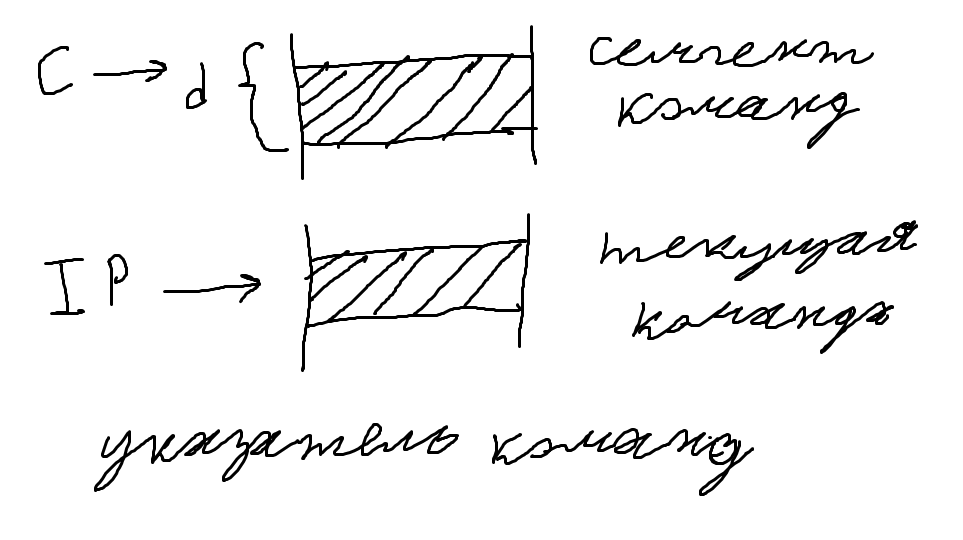 C d сегмент
команд
IP текущая
команда
указатель команд